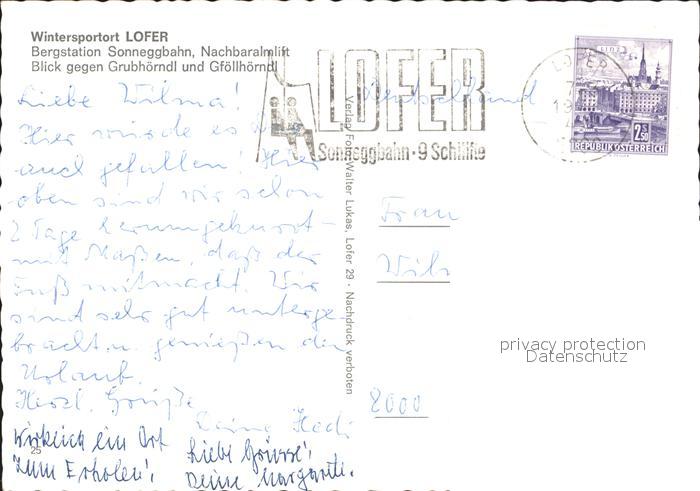 Wintersportort LOFER
Bergstation Sonneggbahn, Nachbaralmlift
Blick gegen Grubhörndl und Gföllhörndl
LOFER
Sonneggbahn · 9 Schilifte
LOFER
LINZ
2.50
REPUBLIK ÖSTERREICH
Deutschland
Liebe Wilma!
Hier würde es Dir
auch gefallen! Hier
oben sind wir schon
2 Tage herumgekurvt -
mit Maßen, daß der
Fuß mitmacht. Wir
sind sehr gut unterge-
bracht u. genießen den
Urlaub.
Herzl. Grüße
Deine Hedi
Wirklich ein Ort
zum Erholen!
Liebe Grüsse!
Deine Margarete.
25
Verlag Foto Walter Lukas, Lofer 29 · Nachdruck verboten
Frau
Wil
8000
privacy protection
Datenschutz